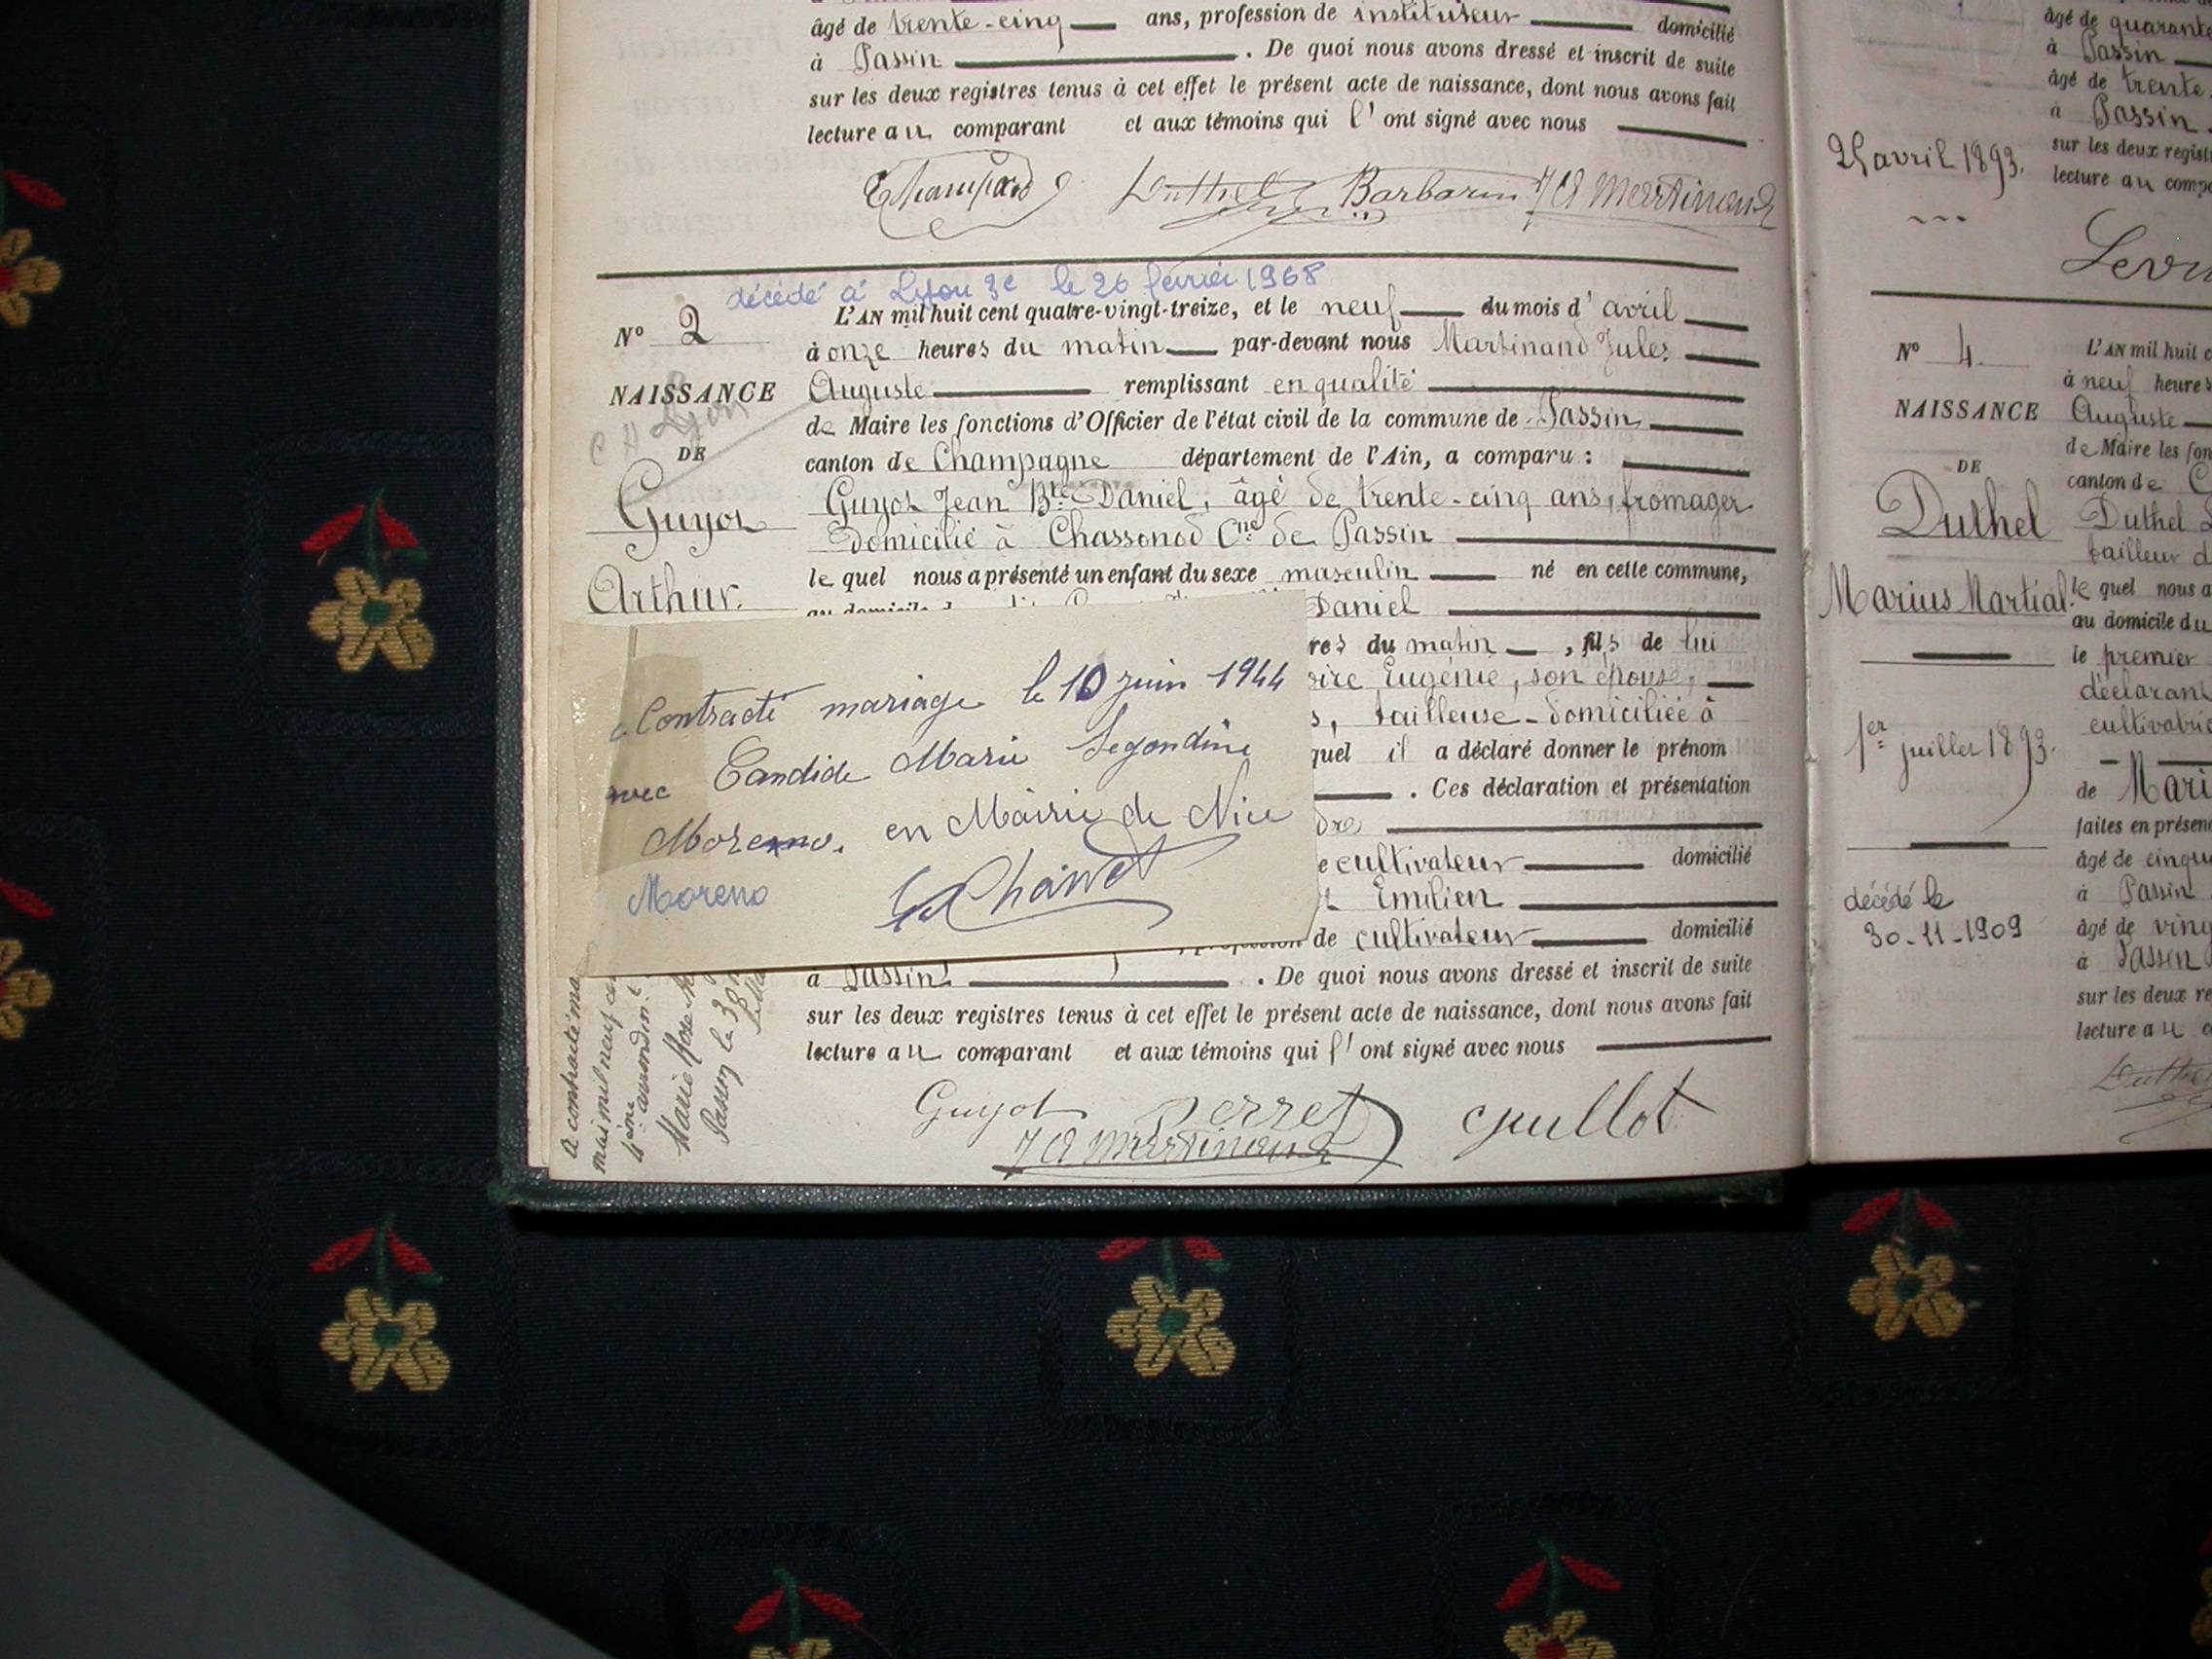 âgé de trente-cinq ans, profession de instituteur domicilié
à Passin . De quoi nous avons dressé et inscrit de suite
sur les deux registres tenus à cet effet le présent acte de naissance, dont nous avons fait
lecture au comparant et aux témoins qui l'ont signé avec nous
Duthel Barbarin JA Martinand
décédé à Lyon 3e le 26 février 1968
N° 2
NAISSANCE
DE
Guyot
Arthur.
L'AN mil huit cent quatre-vingt-treize, et le neuf du mois d'avril
à onze heures du matin par-devant nous Martinand Jules
Auguste remplissant en qualité
de Maire les fonctions d'Officier de l'état civil de la commune de Passin
canton de Champagne département de l'Ain, a comparu :
Guyot Jean Bte Daniel, âgé de trente-cinq ans, fromager
domicilié à Chassonod Cne de Passin
le quel nous a présenté un enfant du sexe masculin né en cette commune,
au domicile d Daniel
res du matin , fils de lui
oire Eugénie, son épouse,
s, tailleuse-domiciliée à
quel il a déclaré donner le prénom
. Ces déclaration et présentation
dre
e cultivateur domicilié
t Emilien
de cultivateur domicilié
à Passin . De quoi nous avons dressé et inscrit de suite
sur les deux registres tenus à cet effet le présent acte de naissance, dont nous avons fait
lecture au comparant et aux témoins qui l'ont signé avec nous
Guyot Perret Guillot
JA Martinand
Contracté mariage le 10 juin 1944
avec Candide Marie Segondine
Moreno. en Mairie de Nice
Moreno
a contracté ma
mai mil neuf ce
4ème arrondin. t
Marie Rose
Passin le 3
âgé de quarante
à Passin
âgé de trente
à Passin
sur les deux regist
lecture au comp
25 avril 1893.
N° 4
NAISSANCE
DE
Duthel
Marius Martial.
1er juillet 1893.
décédé le
30-11-1909
L'AN mil huit c
à neuf heures
Auguste
de Maire les fon
canton de C
Duthel
tailleur d
le quel nous a
au domicile du
le premier
déclarant
cultivatri
de Mari
faites en présen
âgé de cinqu
à Passin
âgé de ving
à Passin
sur les deux re
lecture au c